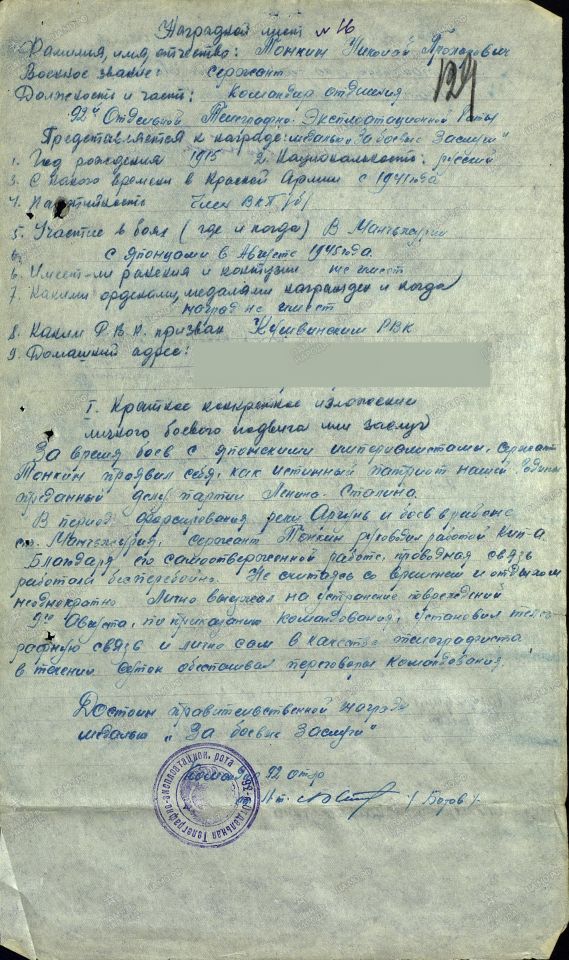 Наградной лист №16
Фамилия, имя, отчество: Тонкин Николай
Военное звание: сержант
129
Должность и часть: командир отделения
92й Отдельной Телеграфно-Эксплоатационной Роты
Представляется к награде: медалью "За боевые заслуги"
1. Год рождения 1915 2. Национальность: русский
3. С какого времени в Красной Армии с 1941 года
4. Партийность член ВКП/б/
5. Участие в боях (где и когда) В Манчжурии
с японцами в Августе 1945 года.
6. Имеет-ли ранения и контузии не имеет
7. Какими орденами, медалями награжден и когда
наград не имеет
8. Каким Р.В.К. призван Кушвинским РВК
9. Домашний адрес:
I. Краткое конкретное изложение
личного боевого подвига или заслуг
За время боев с японскими империалистами, сержант
Тонкин проявил себя, как истинный патриот нашей Родины
преданный делу партии Ленина-Сталина.
В период форсирования реки Аргунь и боев в районе
ст. Манчжурия, сержант Тонкин руководил работой
Благодаря его самоотверженной работе, проводная связь
работала бесперебойно. Не считаясь со временем и отдыхом
неоднократно лично выезжал на устранение повреждений
9го Августа, по приказанию командования, установил телег-
рафную связь и лично сам в качестве телеграфиста
в течении суток обеспечивал переговоры командования.
Достоин правительственной награды
медалью "За боевые заслуги"
92 отэр
/Ботов/
92-Отдельная Телеграфно-эксплоатацион. рота